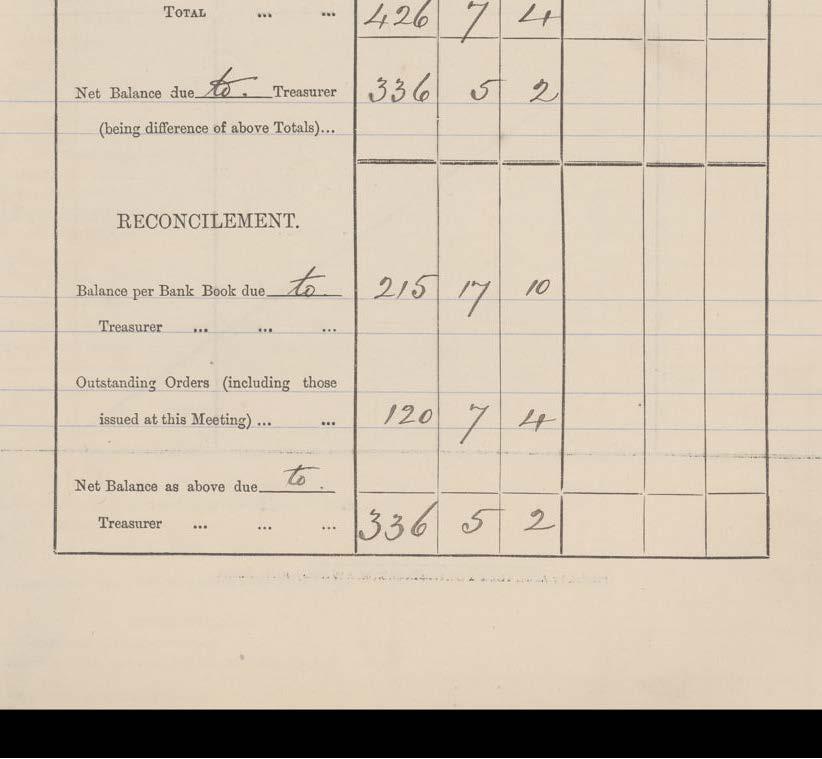 TOTAL ... ... 426 7 4
Net Balance due to. Treasurer 336 5 2
(being difference of above Totals)...
RECONCILEMENT.
Balance per Bank Book due to 215 17 10
Treasurer ... ... ...
Outstanding Orders (including those
issued at this Meeting) ... ... 120 7 4
Net Balance as above due to.
Treasurer ... ... ... 336 5 2